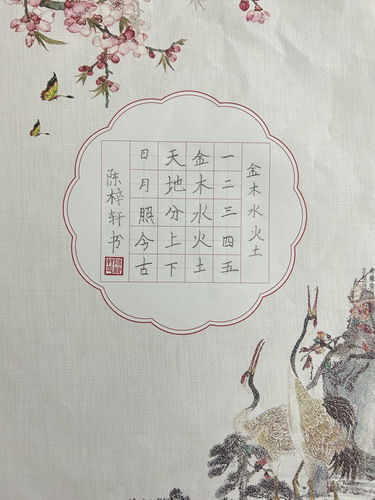 金木水火土
一二三四五
金木水火土
天地分上下
日月照今古
陈梓轩书